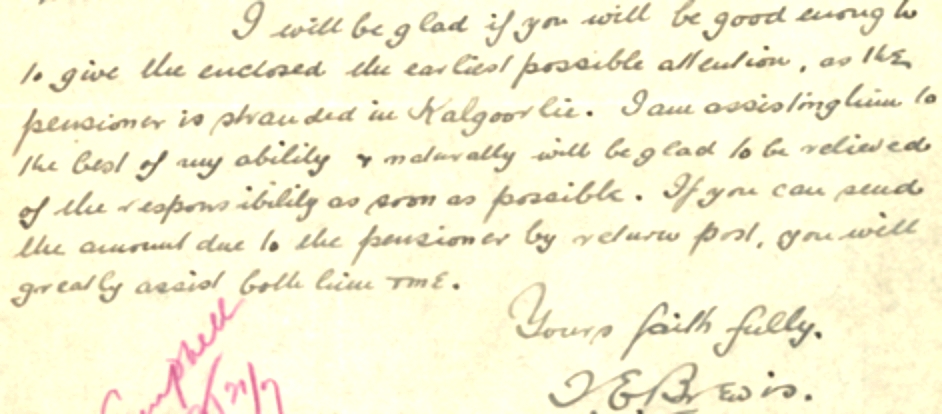 I will be glad if you will be good enough to
to give the enclosed the earliest possible attention, as the
pensioner is stranded in Kalgoorlie. I am assisting him to
the best of my ability & naturally will be glad to be relieved
of the responsibility as soon as possible. If you can send
the amount due to the pensioner by return post, you will
greatly assist both him & me.
Yours faithfully.
Campbell
21/7